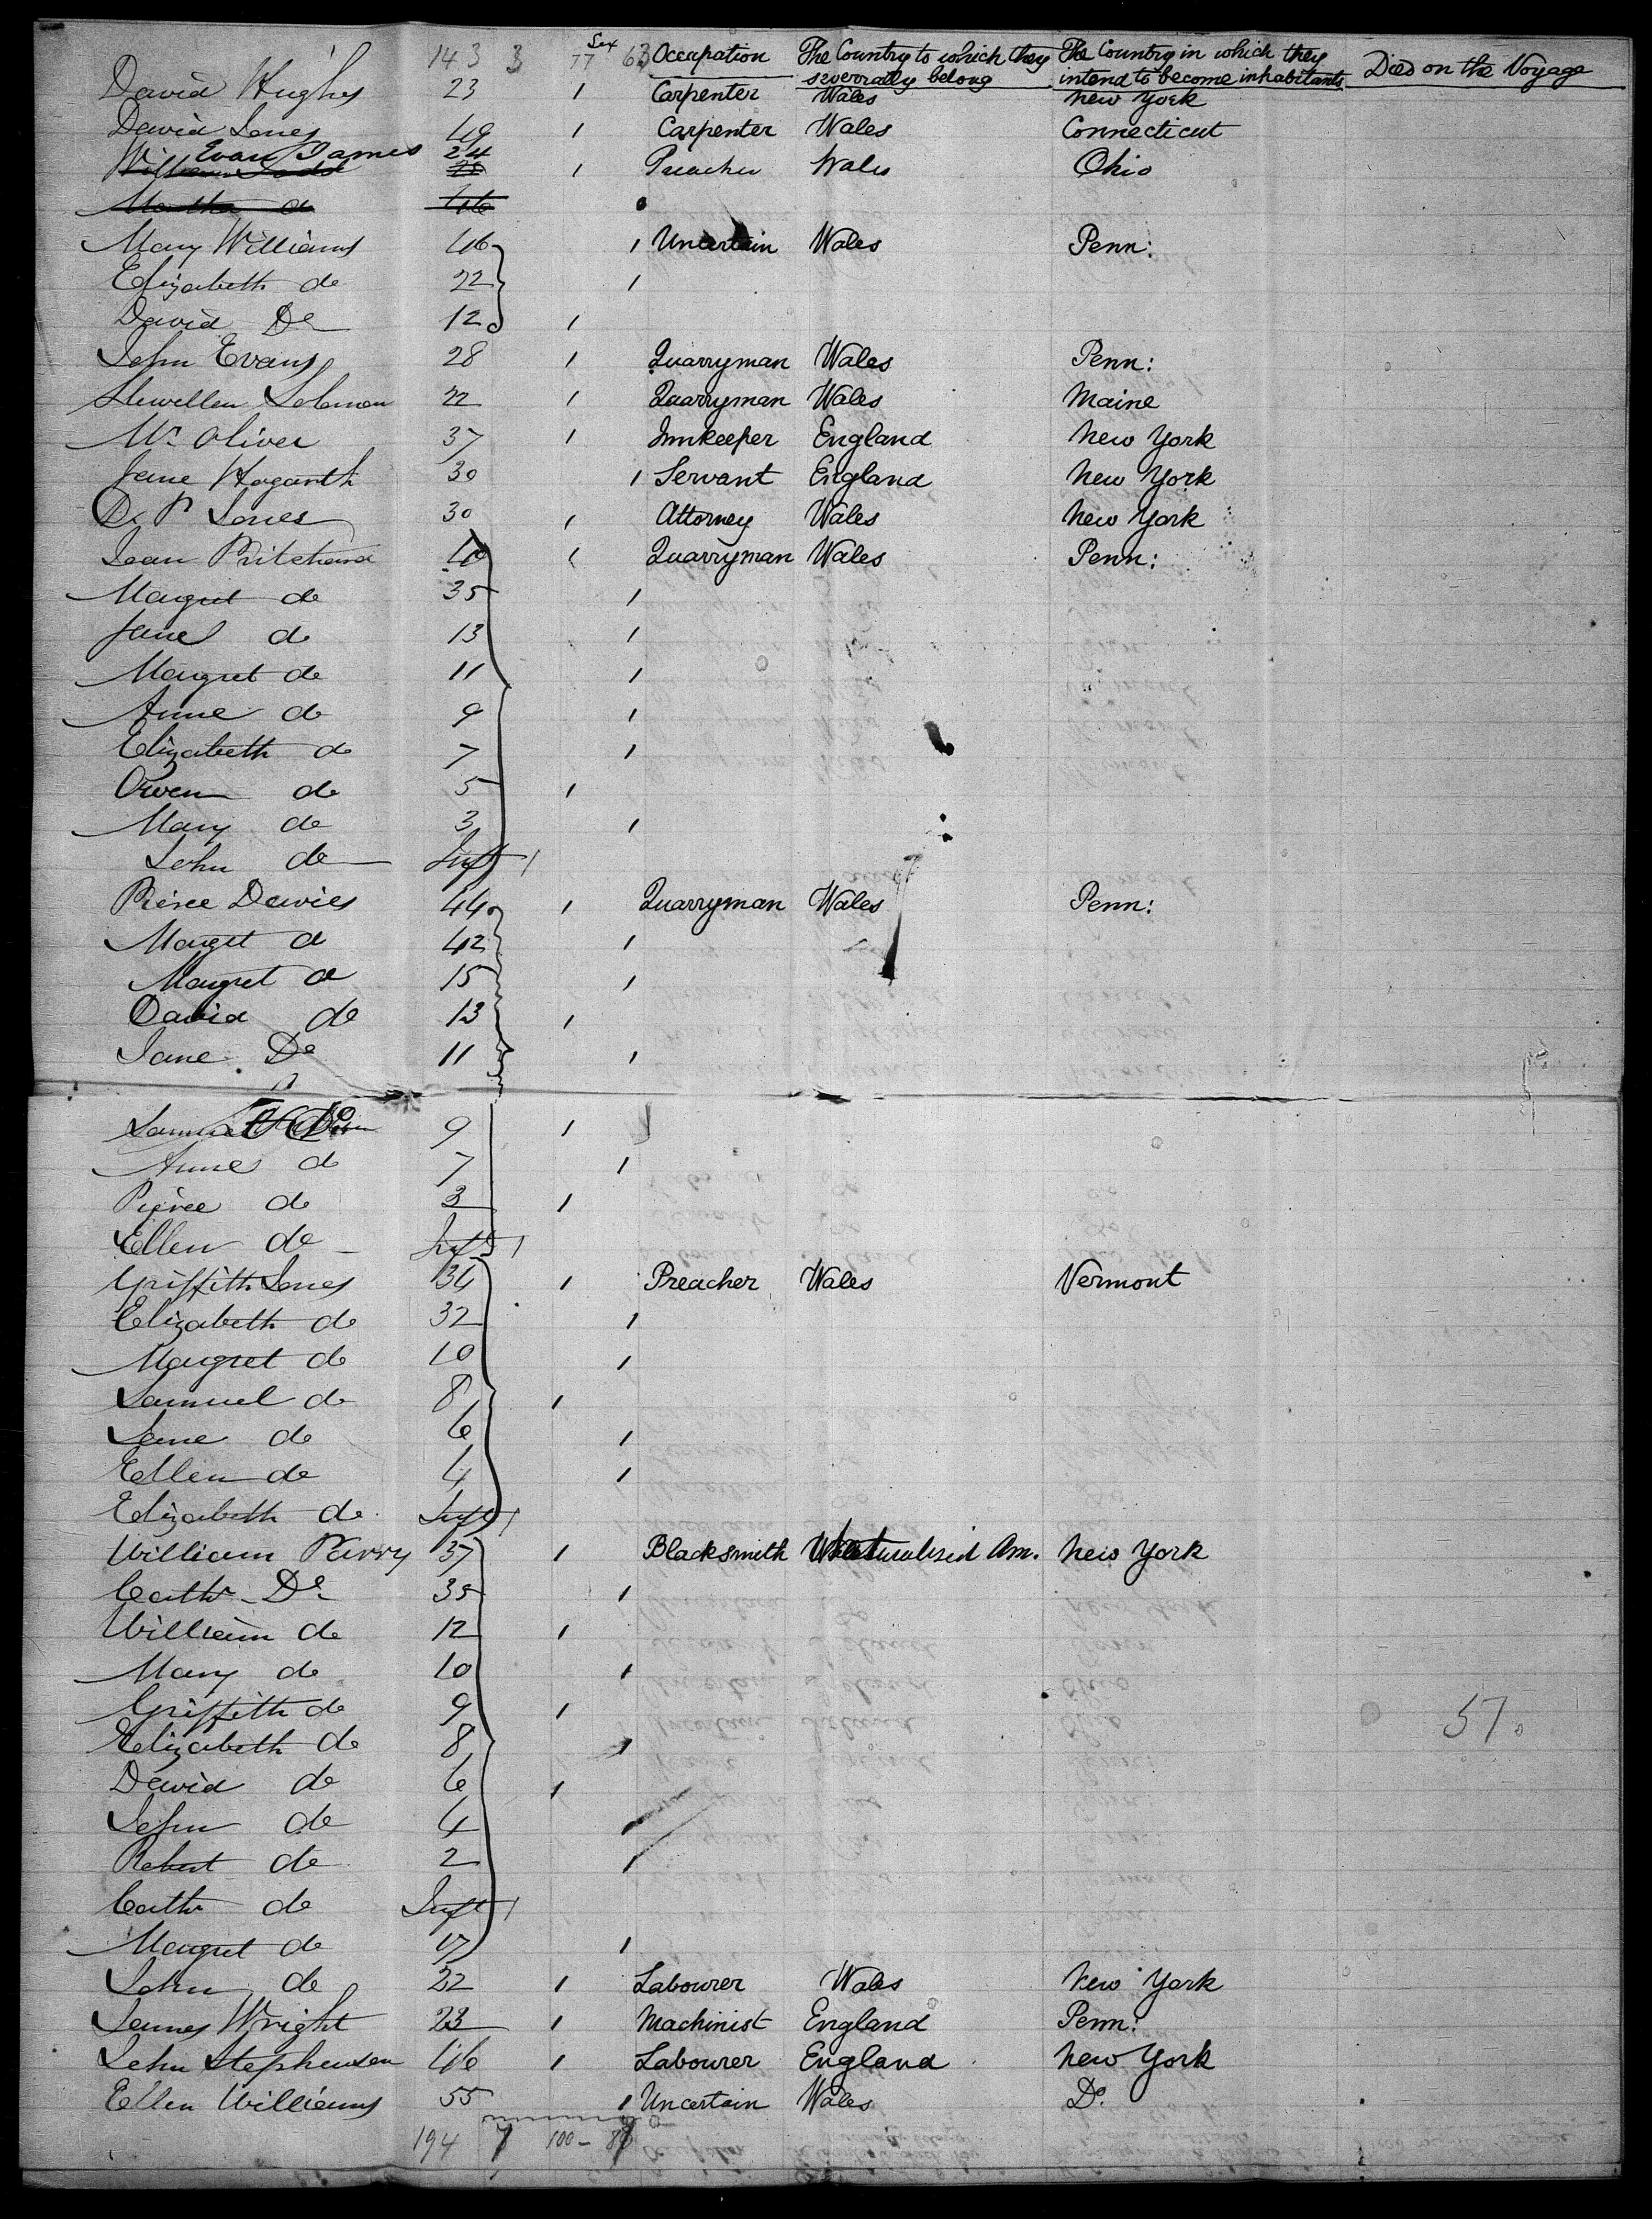 143 3 77 Sex 63 Occupation The Country to which they severally belong The Country in which they intend to become inhabitants Died on the Voyage
David Hughes 23 1 Carpenter Wales New York
David Jones 49 1 Carpenter Wales Connecticut
Evan James 24 1 Preacher Wales Ohio
Martha do 46
Mary Williams 46 1 Uncertain Wales Penn:
Elizabeth do 22 1
David Do 12 1
John Evans 28 1 Quarryman Wales Penn:
Llewellen Solomon 22 1 Quarryman Wales Maine
Wm Oliver 37 1 Innkeeper England New York
Jane Hogarth 30 1 Servant England New York
D. P. Jones 30 1 Attorney Wales New York
Pritchard 40 1 Quarryman Wales Penn:
Margret do 35 1
Jane do 13 1
Margret do 11 1
Anne do 9 1
Elizabeth do 7 1
Owen do 5 1
Mary do 3 1
John do Inft 1
Pierce Davies 44 1 Quarryman Wales Penn:
Margt d 42 1
Margret d 15 1
David do 13 1
Jane Do 11 1
Samuel Do 9 1
Anne do 7 1
Pierce do 3 1
Ellen do Inft 1
Griffith Jones 34 1 Preacher Wales Vermont
Elizabeth do 32 1
Margret do 10 1
Samuel do 8 1
Jane do 6 1
Ellen do 4 1
Elizabeth do Inft 1
William Parry 37 1 Blacksmith Naturalised Am. New York
Cathe Do 35 1
William do 12 1
Mary do 10 1
Griffith do 9 1
Elizabeth do 8 1
David do 6 1
John do 4 1
Robert do 2 1
Cathe do Inft 1
Margret do 17 1
John do 22 1 Labourer Wales New York
James Wright 23 1 Machinist England Penn:
John Stephenson 46 1 Labourer England New York
Ellen Williams 55 1 Uncertain Wales Do.
194 7 100 - 87
51.